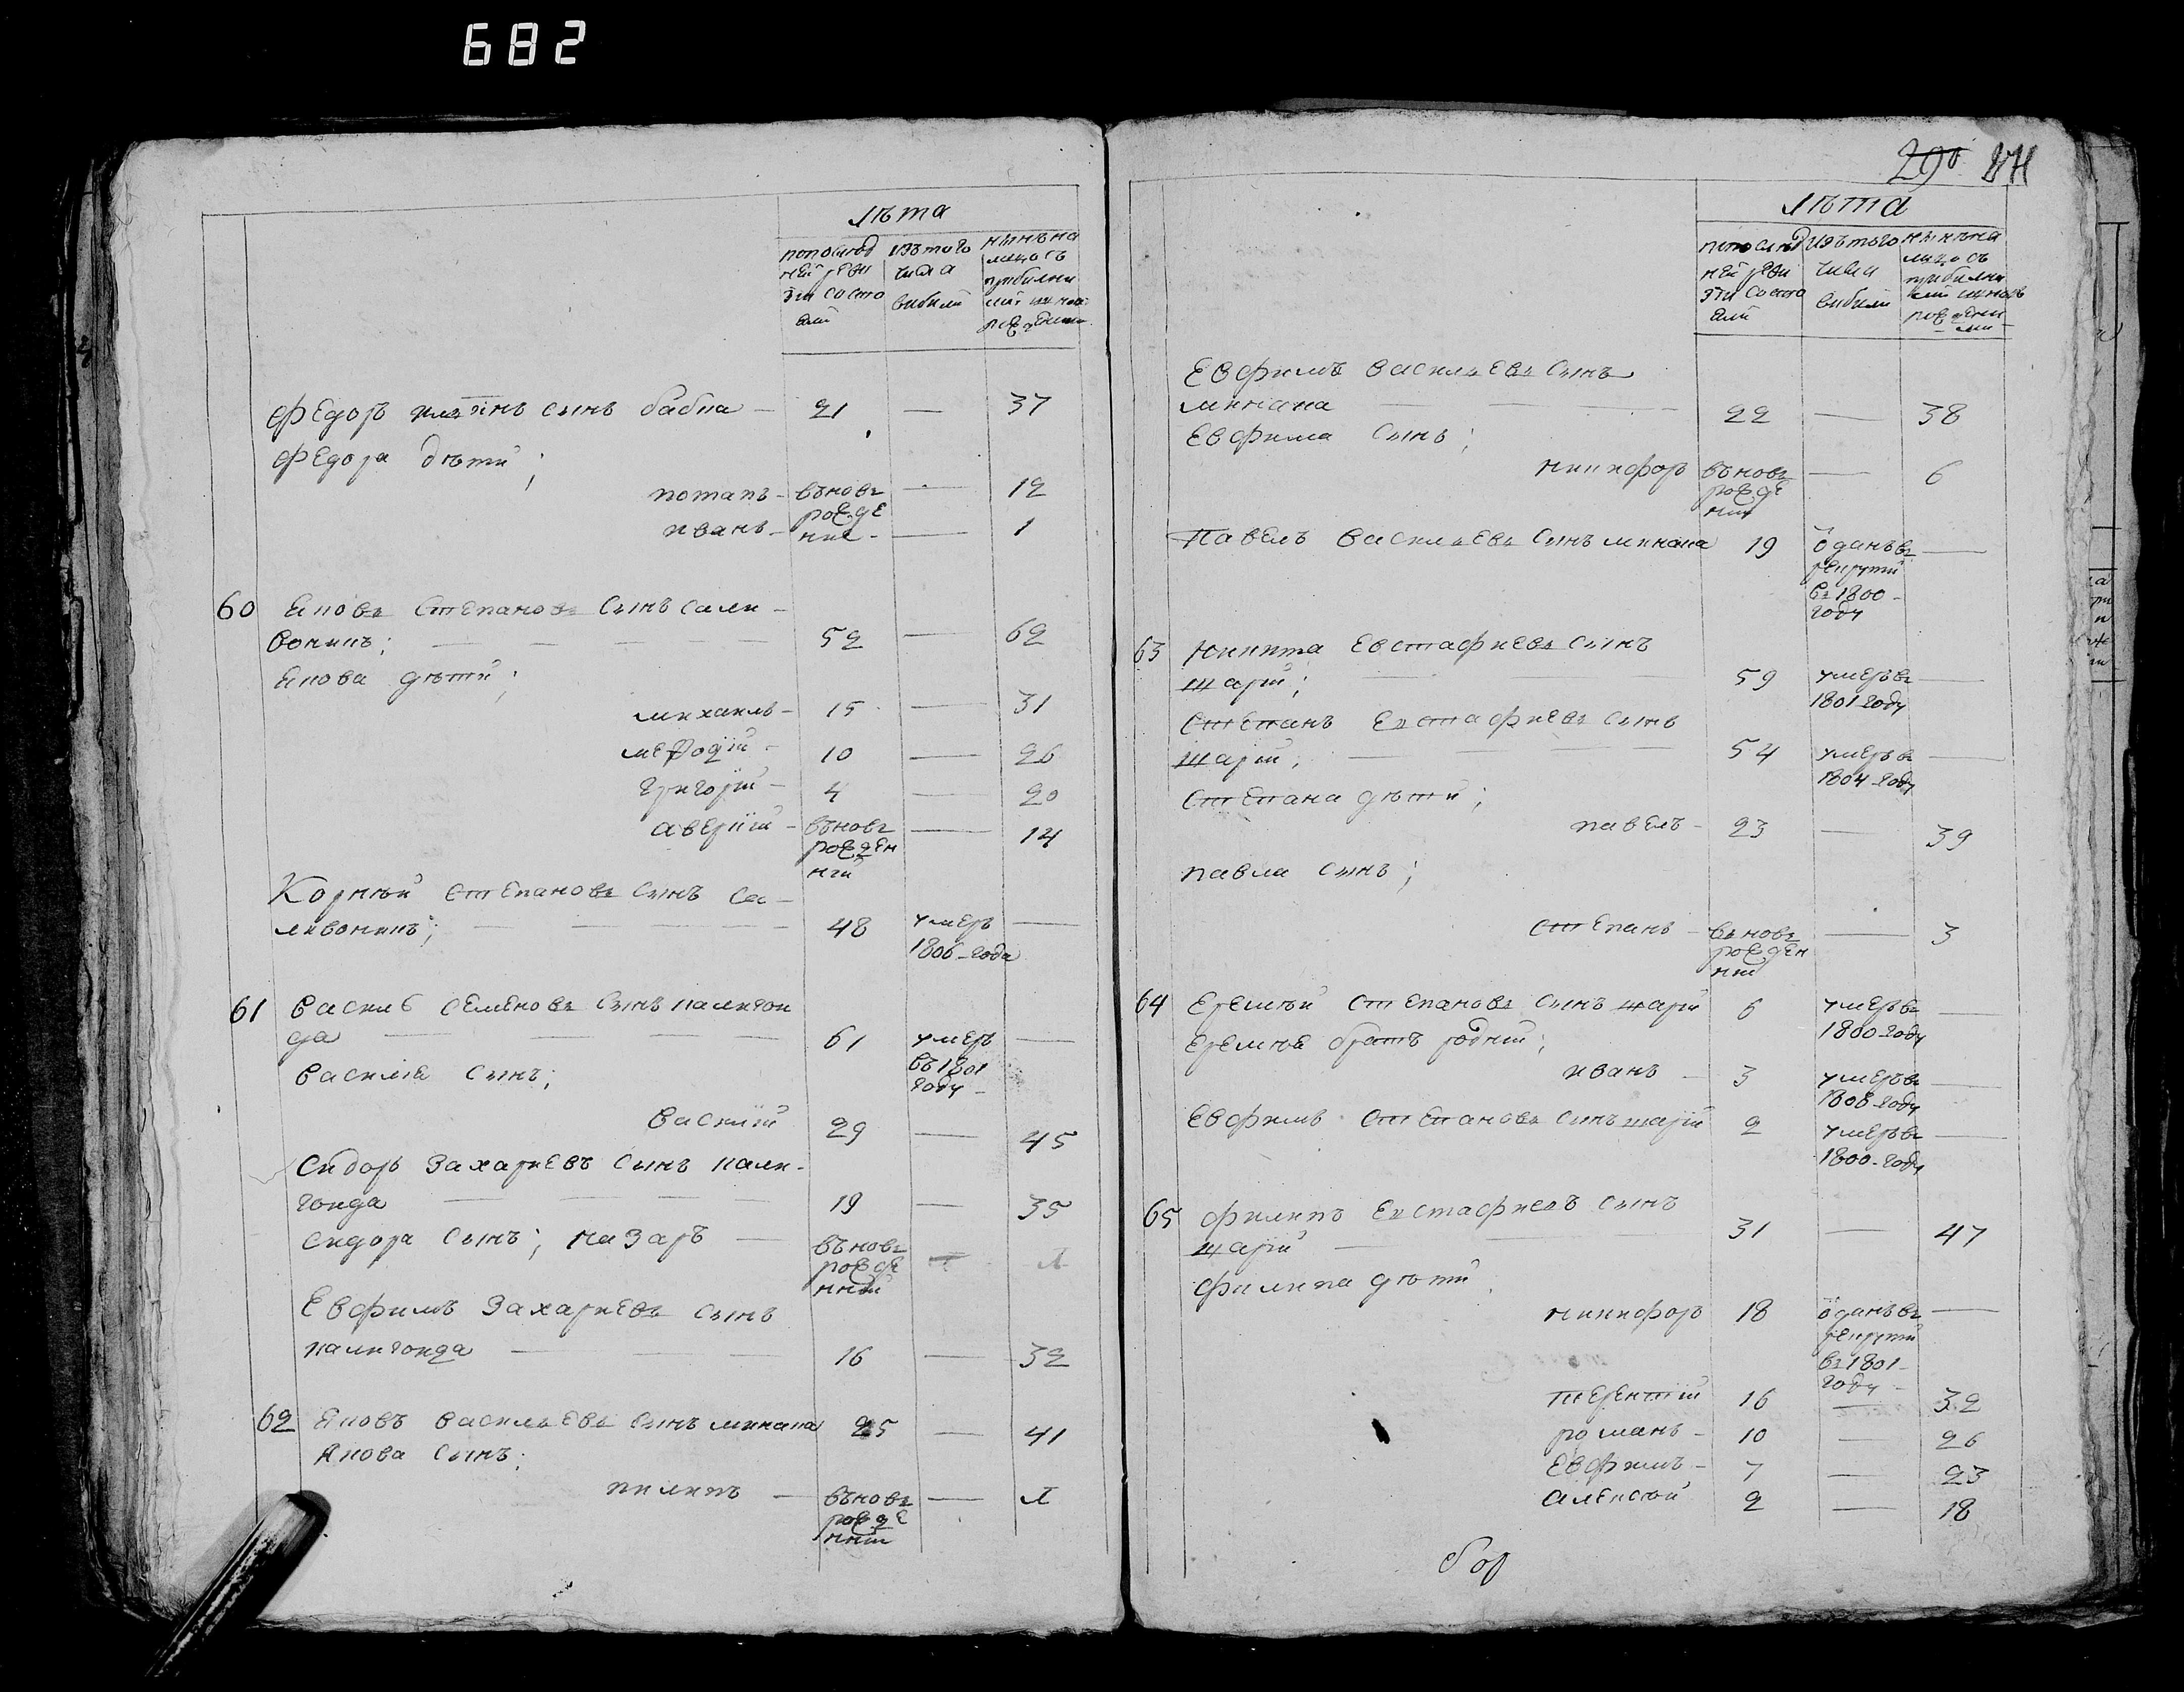 682
Лѣта
попослѣд
ней реви
зіи состо
али
изътого
числа
выбыли
нынѣ на
лицо съ
прибылы
ми и нов
рожден
Федоръ сынъ бабка — 21 — 37
Федора дѣти;
потапъ — вънове — 12
рожде
иванъ — нніе — 1
60 Яковъ Степановъ сынъ сали
вонипъ; 52 — 62
Якова дѣти;
михаилъ — 15 — 31
мефодій — 10 — 26
григорій — 4 — 20
аверкій — вънове — 14
рожден
ніи
Корнѣй степановъ сынъ са
ливонипъ; 48 умеръ —
1806 года
61 Василь семеновъ сынъ калигон
да 61 умеръ —
въ 1801
году
Василія сынъ;
Василій 29 — 45
Сидоръ Захаріевъ сынъ кали
гонда 19 — 35
Сидора сынъ; назаръ — вънове
рожде
нній
Евфимъ Захаріевъ сынъ
калигонда 16 — 32
62 Яковъ васильевъ сынъ минака 25 — 41
Якова сынъ;
пилипъ — вънове —
рожде
нній
290
Лѣта
попослѣд
ней реви
зіи состо
али
изътого
числа
выбыли
нынѣна
лицо съ
прибылы
ми иновъ
рожденн
ми
Евфимъ васильевъ сынъ
минака 22 — 38
Евфима сынъ;
никифоръ вънове — 6
рожде
нній
Павелъ васильевъ сынъ минака 19 ѿданъ въ —
рекруты
въ 1800
году
63 Никита Евстафиевъ сынъ
шарій; 59 умеръ въ —
1801 году
Степанъ Евстафиевъ сынъ
шарій; 54 умеръ въ —
1804 году
Степана дѣти;
павелъ — 23 — 39
павла сынъ;
степанъ — вънове — 3
рожден
ній
64 Еремѣй степановъ сынъ шарій 6 умеръ въ —
1800 году
Еремѣя братъ родній;
иванъ — 3 умеръ въ —
1808 году
Евфимъ Степановъ сынъ шарій 2 умеръ въ —
1800 году
65 Филипъ Евстафиевъ сынъ
шарій 31 — 47
Филипа дѣти
никифоръ 18 ѿданъ въ —
рекруты
въ 1801
году
терентій 16 — 32
романъ — 10 — 26
Евфимъ — 7 — 23
алексѣй 2 — 18